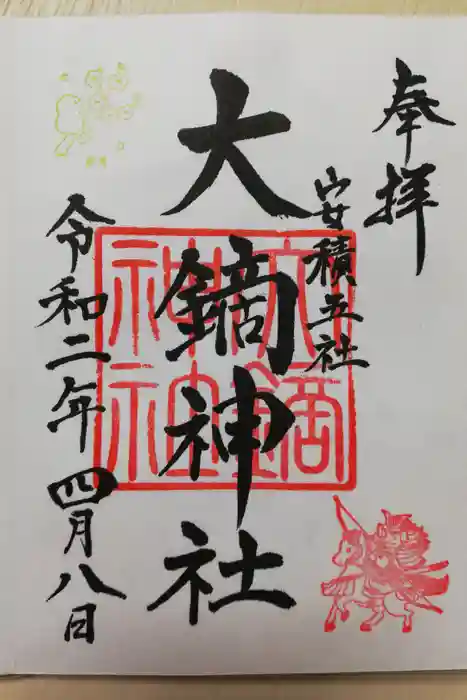 奉拝
安積五社
大鏑神社
令和二年四月八日